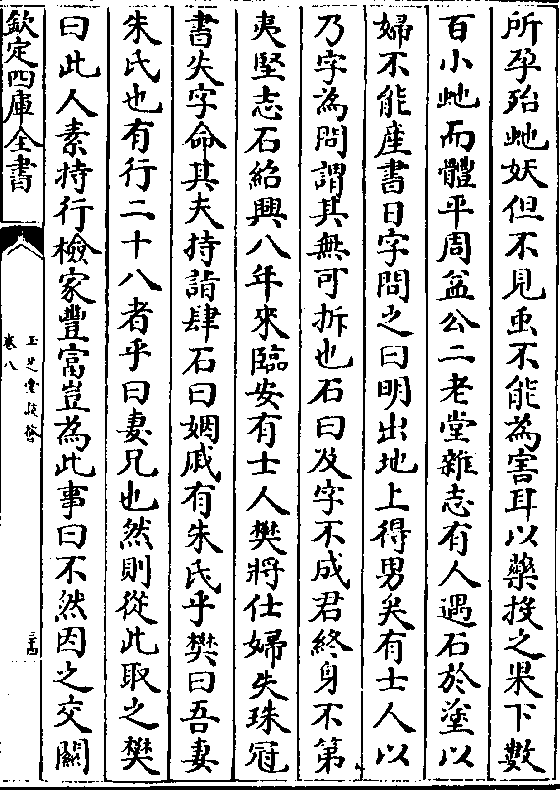 所孕殆虵妖但不見䖝不能為害耳以藥投之果下數
百小虵而體平周益公二老堂雜志有人遇石於塗以
婦不能産書日字問之曰明出地上得男矣有士人以
乃字為問謂其無可拆也石曰及字不成君終身不第
夷堅志石紹興八年來臨安有士人樊將仕婦失珠冠
書失字命其夫持詣肆石曰姻戚有朱氏乎樊曰吾妻
朱氏也有行二十八者乎曰妻兄也然則從此取之樊
曰此人素持行檢家豐富豈為此事曰不然因之交關
欽定四庫全書
卷八
玉芝堂談薈